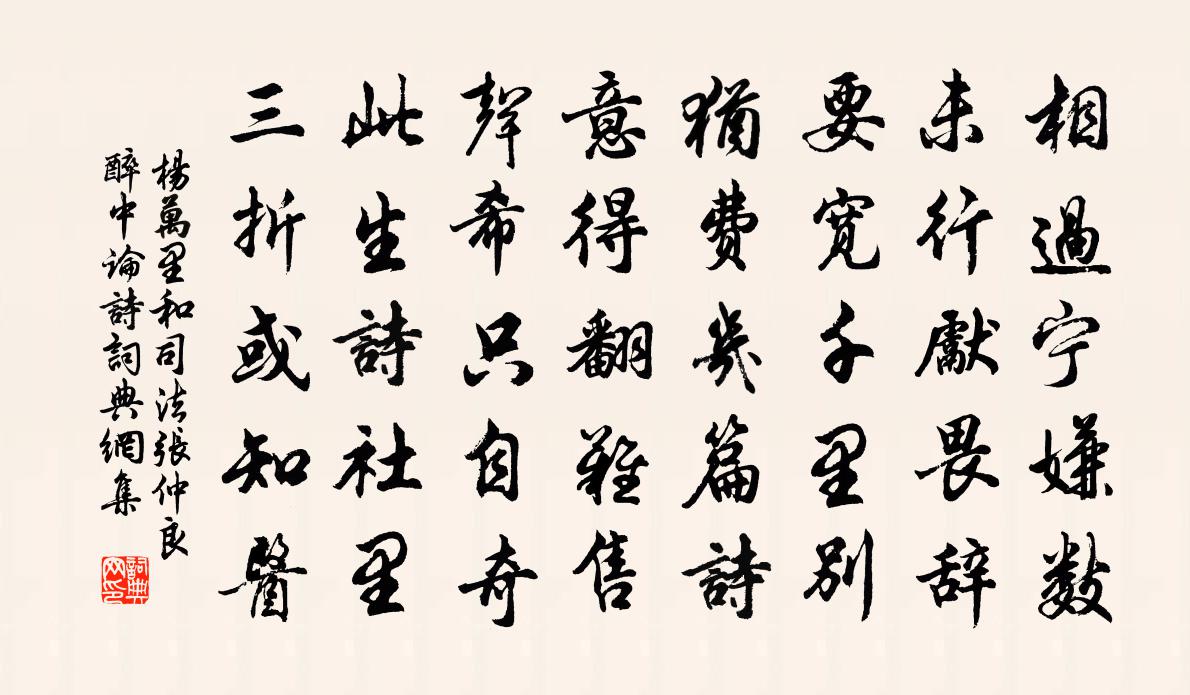 相過宁嫌数
未行獻畏辞
要寛千里別
猶費幾篇詩
意得翻難售
聲希只自奇
此生詩社里
三折或知醫
楊萬里和司法張仲良
醉中論詩詞典網集
詞典网印